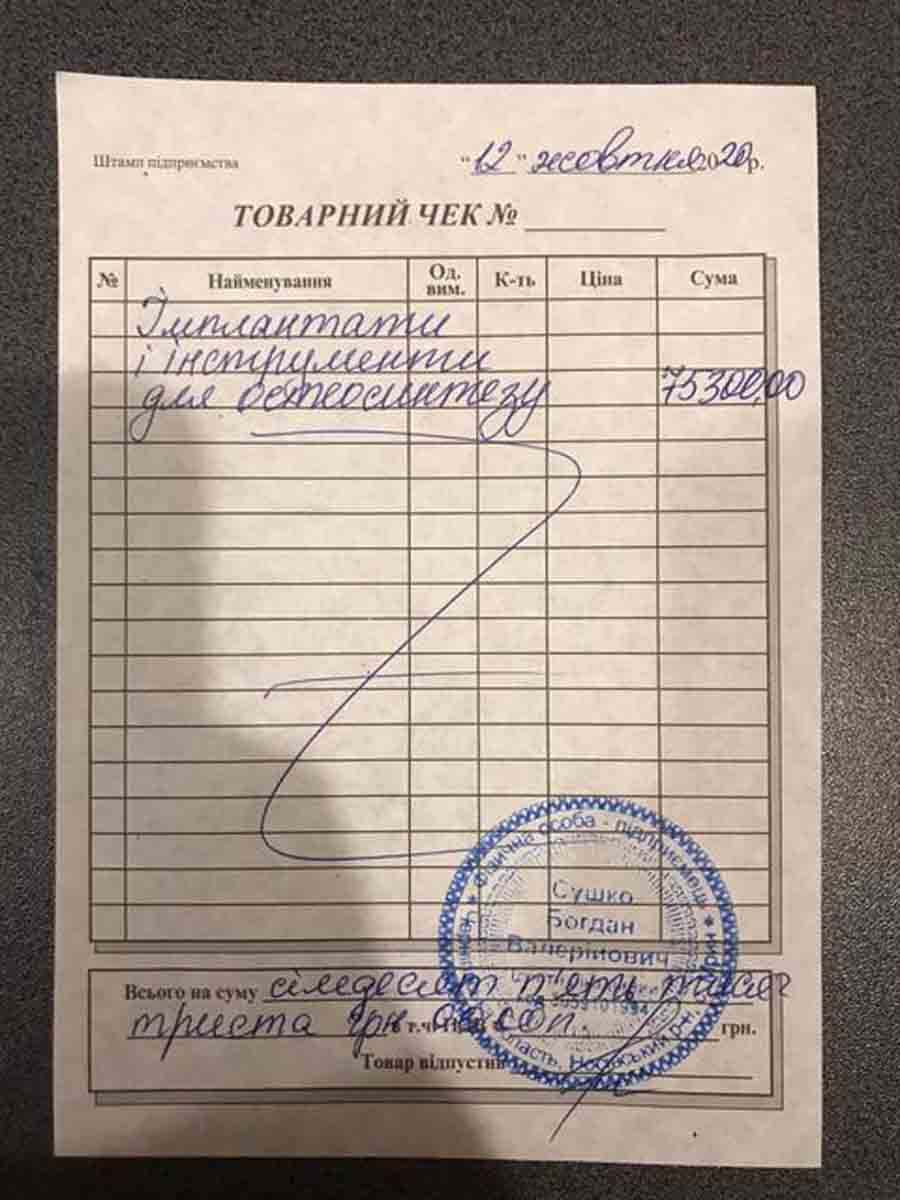 Штамп підприємства
"12" жовтня 2020р.
ТОВАРНИЙ ЧЕК №
№ Найменування Од. вим. К-ть Ціна Сума
Імплантати
і інструменти
для остеосинтезу 75300,00
Фізична особа - підприємець
Сушко
Богдан
Валерійович
область, Носівський р-н,
Всього на суму сімдесят п'ять тисяч
триста грн 00 коп. грн.
Товар відпустив